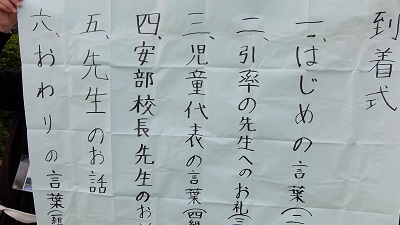 到着式
一、はじめの言葉(二
二、引率の先生へのお礼(三
三、児童代表の言葉(四組
四、安部校長先生のお
五、先生のお話
六、おわりの言葉(一組